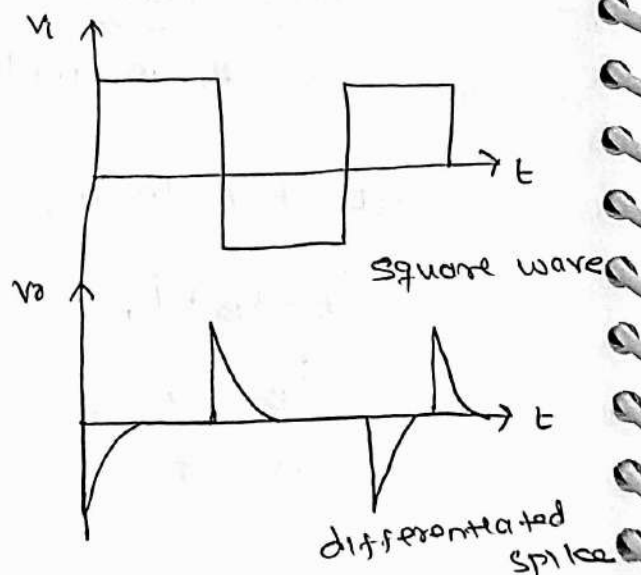 Vi
t
square wave
Vo
t
differentiated
spike